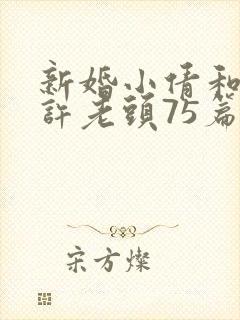 新婚小倩和
許老頭75篇
宋方燦